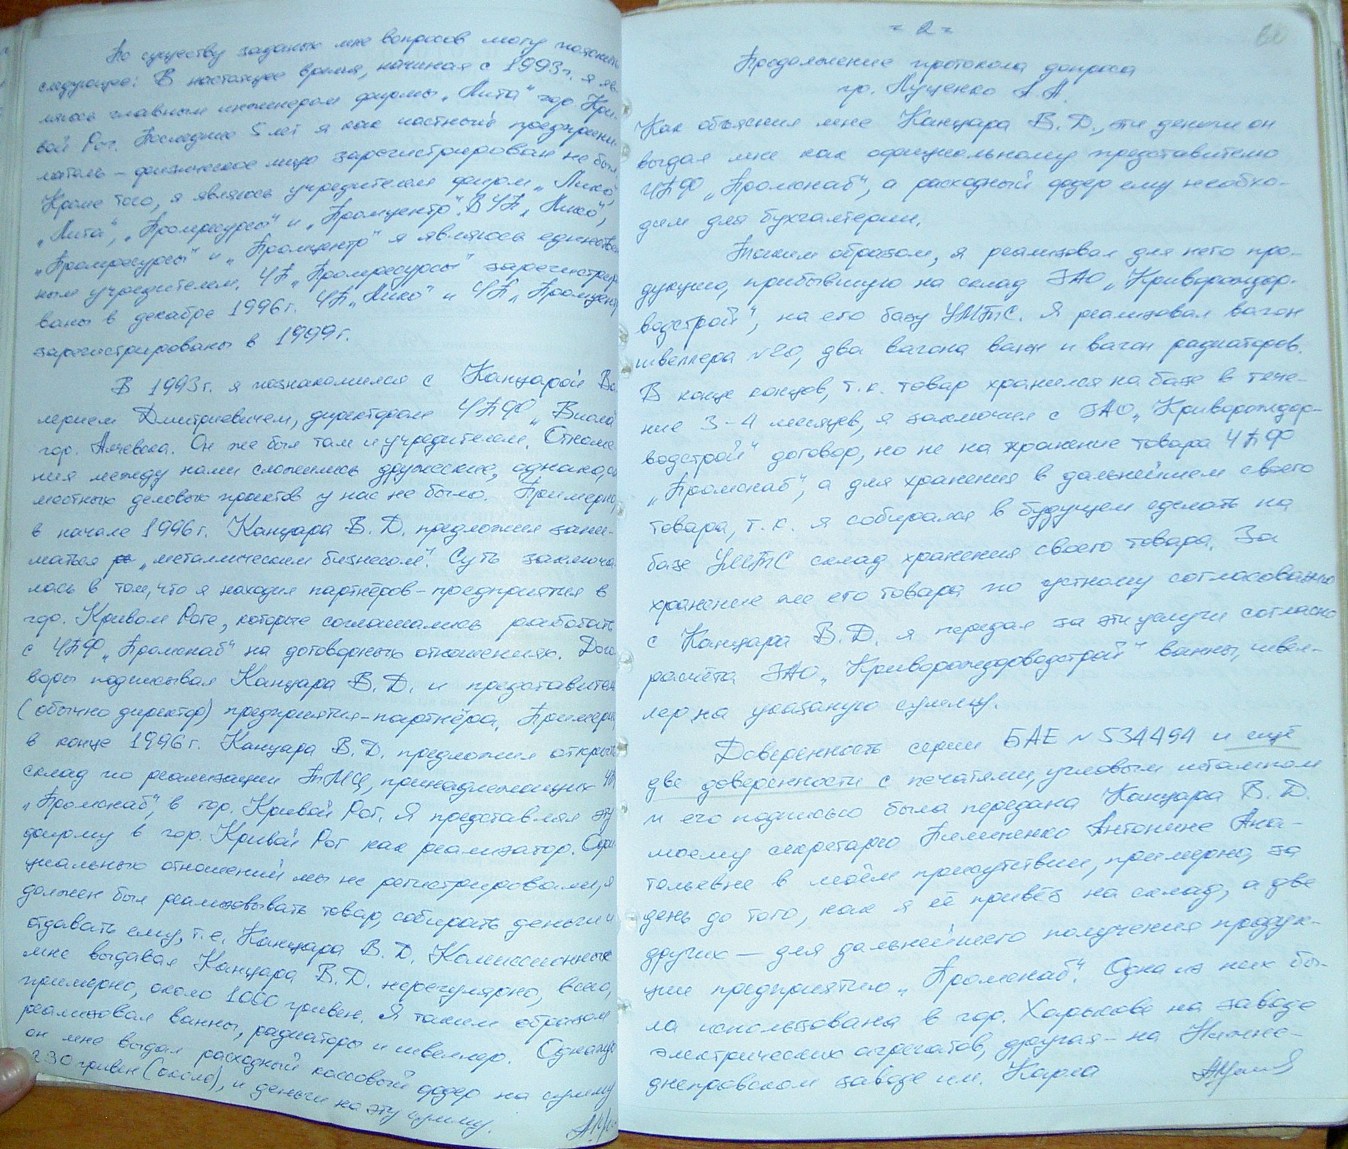 По существу заданых мне вопросов могу пояснить
следующее: В настоящее время, начиная с 1993г. я яв-
ляюсь главным инженером фирмы „Лита" гор. Кри-
вой Рог. Последние 5 лет я как частный предприни-
матель – физическое лицо зарегистрирован не был.
Кроме того, я являюсь учредителем фирм „Лико",
„Лита", „Промресурсы" и „Промцентр". В ЧП „Лико",
„Промресурсы" и „Промцентр" я являюсь единствен-
ным учредителем. ЧП „Промресурсы" зарегистриро-
ваны в декабре 1996г. ЧП „Лико" и ЧП „Промцентр
зарегистрированы в 1999г.
В 1993г. я познакомился с Канцарой Ва-
лерием Дмитриевичем, директором ЧПФ „Виола"
гор. Алчевска. Он же был там и учредителем. Отноше-
ния между нами сложились дружеские, однако, со
местных деловых проектов у нас не было. Примерно,
в начале 1996г. Канцара В. Д. предложил зани-
маться „металлическим бизнесом". Суть заключа
лась в том, что я находил партнёров – предприятия в
гор. Кривом Роге, которые соглашались работать
с ЧПФ „Промснаб" на договорных отношениях. Дого
воры подписывал Канцара В. Д. и представитель
(обычно директор) предприятия-партнёра. Примерно
в конце 1996г. Канцара В. Д. предложил открыть
склад по реализации ТМЦ, принадлежащих ЧП
„Промснаб", в гор. Кривой Рог. Я представлял эту
фирму в гор. Кривой Рог как реализатор. Офи
циальных отношений мы не регистрировали, я
должен был реализовывать товар, собирать деньги и
отдавать ему, т.е. Канцара В. Д. Комиссионных
мне выдавал Канцара В. Д. нерегулярно, всего,
примерно, около 1000 гривен. Я таким образом
реализовал ванны, радиаторы и швеллер. Однажды
он мне выдал расходный кассовый ордер на сумму
230 гривен (около), и деньги на эту сумму.
- 2 -
Продолжение протокола допроса
гр. Луценко А. А.
Как объяснил мне Канцара В. Д., эти деньги он
выдал мне как официальному представителю
ЧПФ „Промснаб", а расходный ордер ему необхо-
дим для бухгалтерии.
Таким образом, я реализовал для него про-
дукцию, прибывшую на склад ЗАО „Криворождор-
водстрой", на его базу УМТС. Я реализовал вагон
швеллера №20, два вагона ванн и вагон радиаторов.
В конце концов, т. к. товар хранился на базе в тече-
ние 3-4 месяцев, я заключил с ЗАО „Криворождор-
водстрой" договор, но не на хранение товара ЧПФ
„Промснаб", а для хранения в дальнейшем своего
товара, т. к. я собирался в будущем сделать на
базе УМТС склад хранения своего товара. За
хранение же его товара по устному согласованию
с Канцара В. Д. я передал за эти услуги согласно
расчёта ЗАО „Криворождорводстрой" ванны, швел-
лер на указаную сумму.
Доверенность серии БАЕ №534494 и ещё
две доверенности с печатями, угловым штампом
и его подписью была передана Канцара В. Д.
моему секретарю Пилипенко Антонине Ана-
тольевне в моём присутствии, примерно, за
день до того, как я её привёз на склад, а две
других – для дальнейшего получения продук-
ции предприятию „Промснаб". Одна из них бы-
ла использована в гор. Харькове на заводе
электрических агрегатов, другая – на Нижне-
днепровском заводе им. Карла